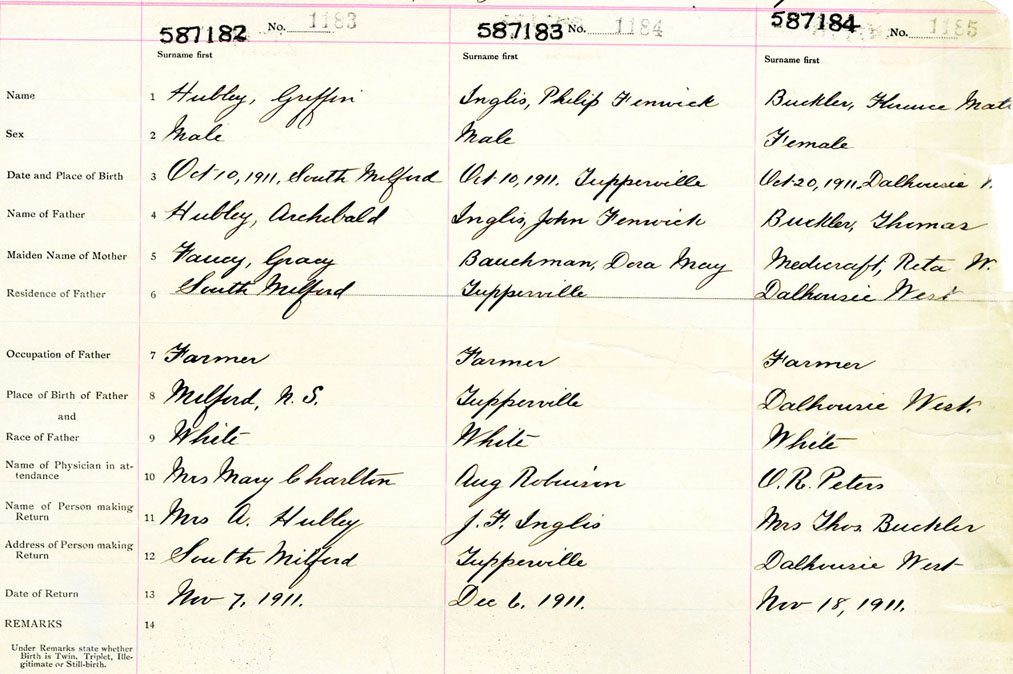 587182 No. 1183 587183 No. 1184 587184 No. 1185
Surname first Surname first Surname first
Name 1 Hubley, Griffin Inglis, Philip Fenwick Buckler, Florence
Sex 2 Male Male Female
Date and Place of Birth 3 Oct 10, 1911, South Milford Oct 10, 1911. Tupperville Oct 20, 1911, Dalhousie
Name of Father 4 Hubley, Archibald Inglis, John Fenwick Buckler, Thomas
Maiden Name of Mother 5 Fancy, Gracy Bauchman, Dora May Medicraft, Reta W.
Residence of Father 6 South Milford Tupperville Dalhousie West
Occupation of Father 7 Farmer Farmer Farmer
Place of Birth of Father 8 Milford, N.S. Tupperville Dalhousie West.
and
Race of Father 9 White White White
Name of Physician in at-
tendance 10 Mrs Mary Charlton Aug Robinson O.R. Peters
Name of Person making
Return 11 Mrs A. Hubley J.F. Inglis Mrs Thos Buckler
Address of Person making
Return 12 South Milford Tupperville Dalhousie West
Date of Return 13 Nov 7, 1911. Dec 6, 1911. Nov 18, 1911.
REMARKS 14
Under Remarks state whether
Birth is Twin, Triplet, Ille-
gitimate or Still-birth.